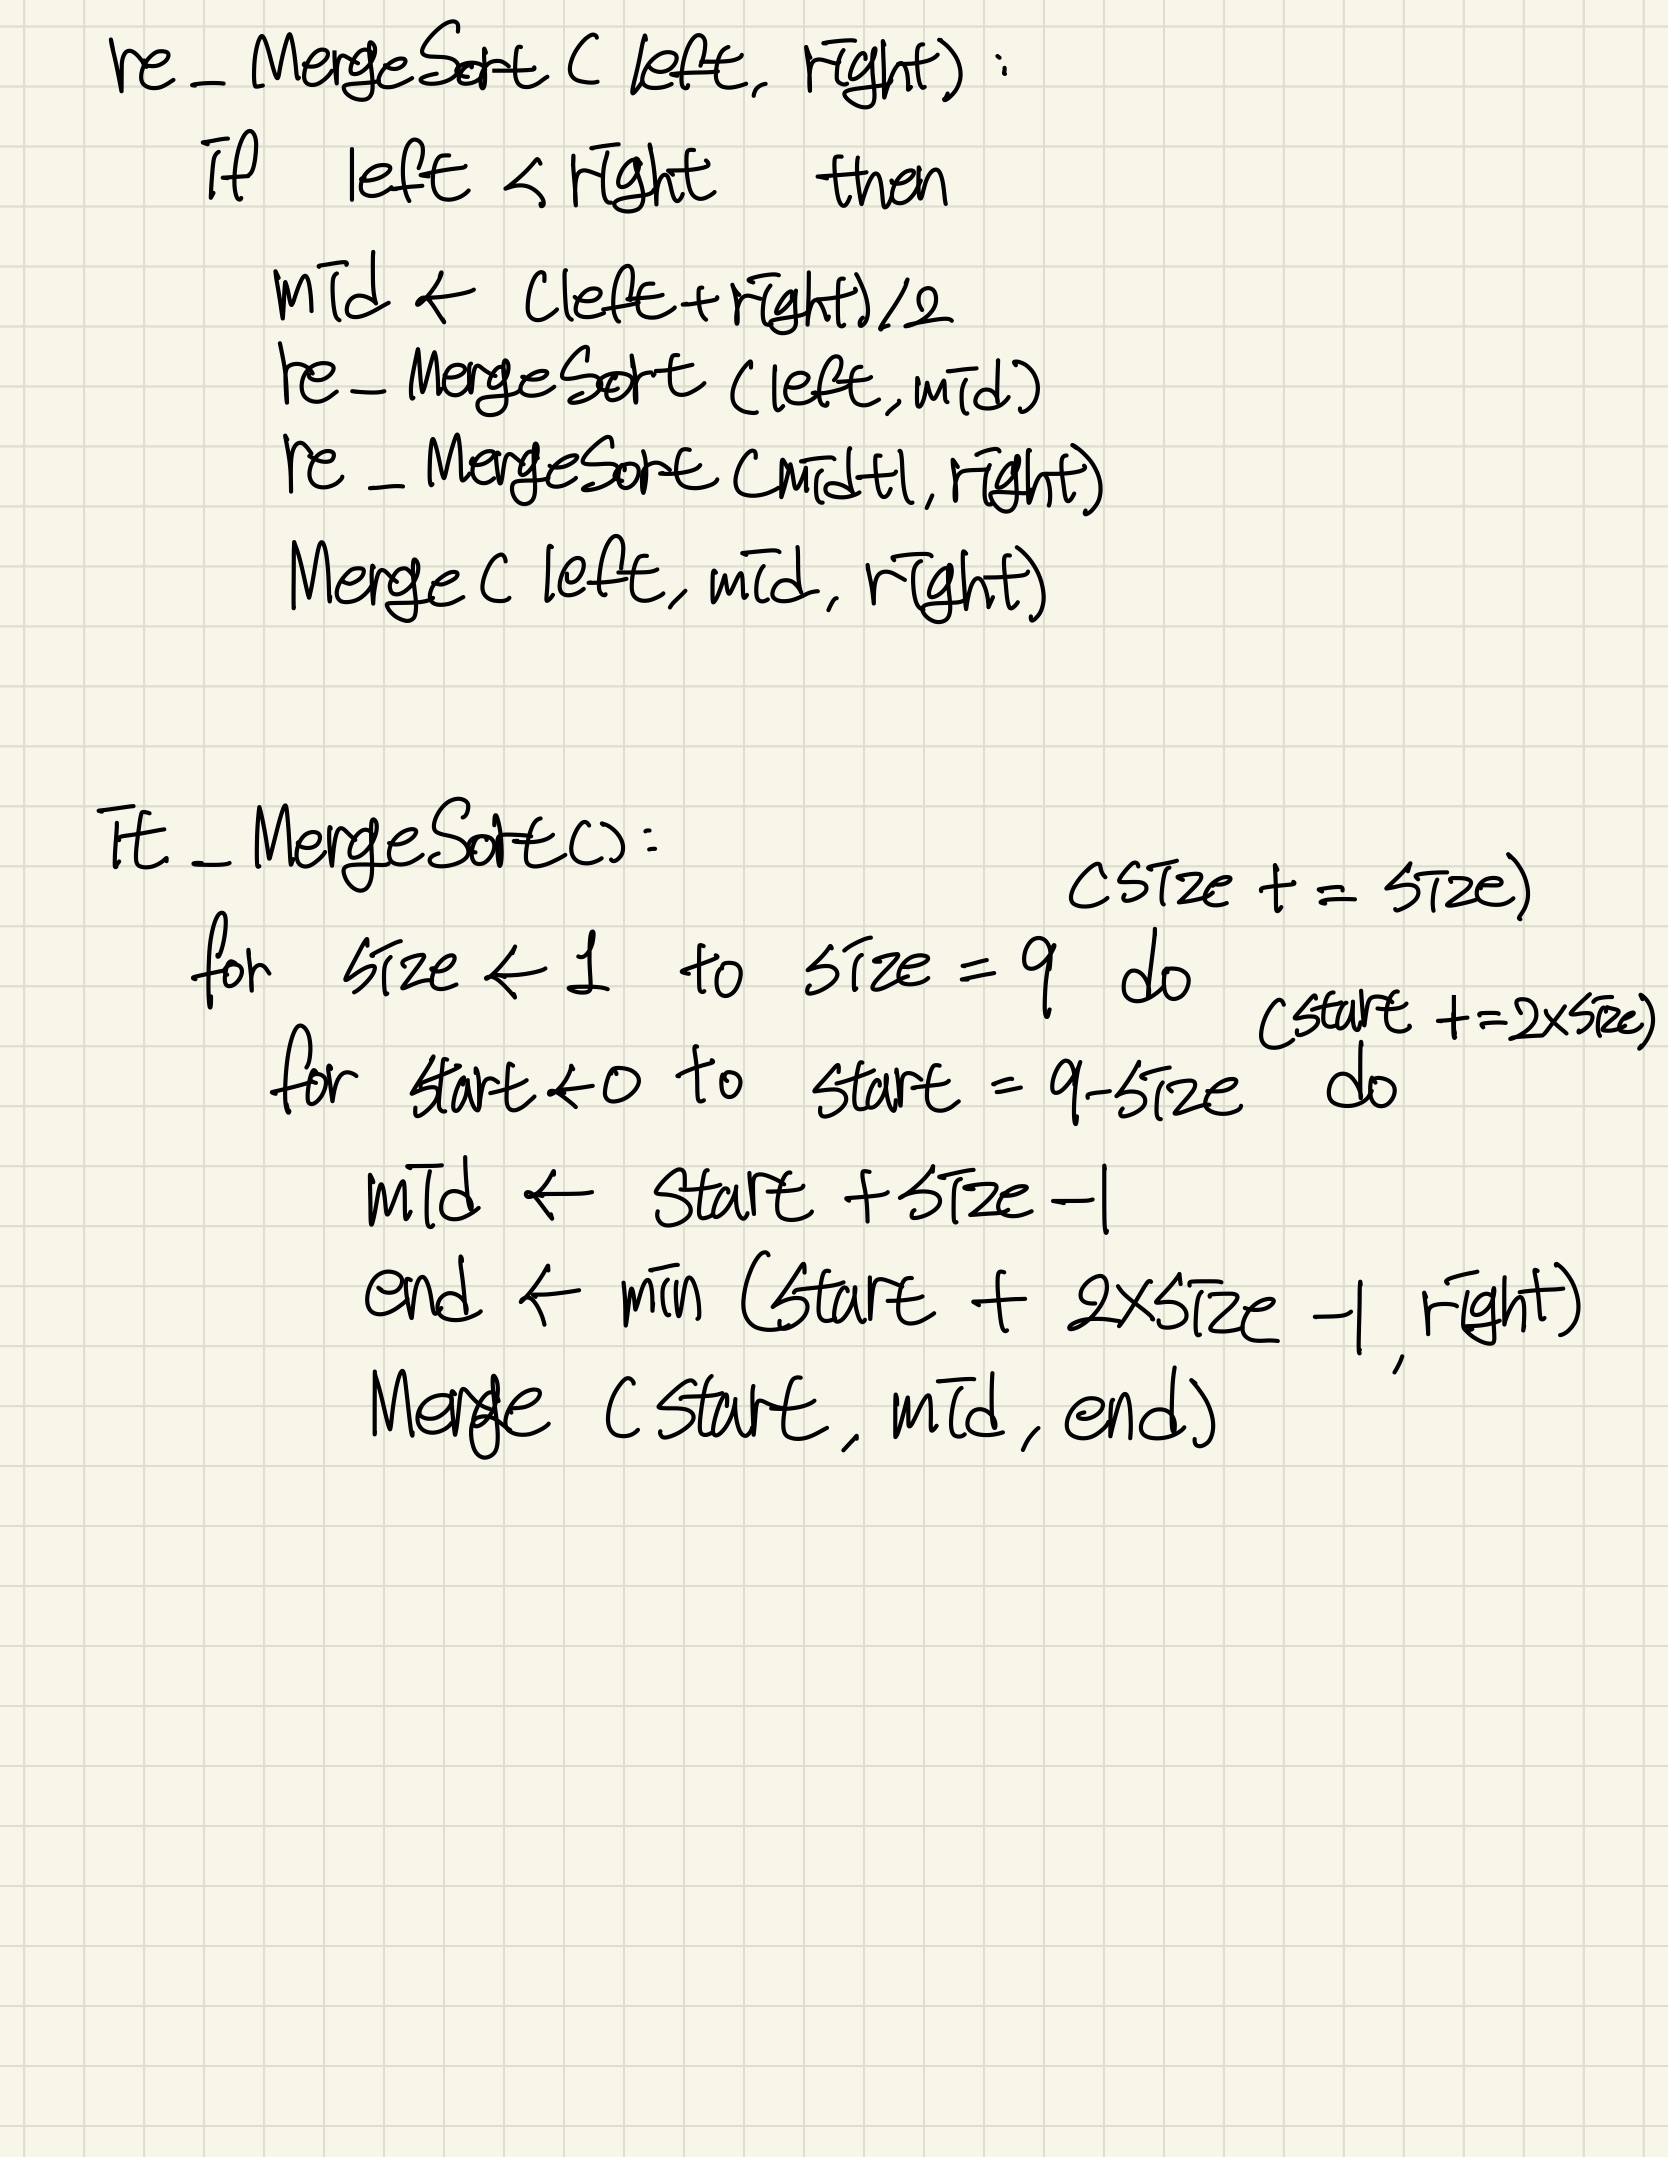 re_MergeSort(left, right):
if left < right then
mid ← (left+right)/2
re_MergeSort(left, mid)
re_MergeSort(mid+1, right)
Merge(left, mid, right)
It_MergeSort():
(size += size)
for size ← 1 to size = 9 do
(start +=2×size)
for start ← 0 to start = 9-size do
mid ← start + size - 1
end ← min (start + 2×size - 1, right)
Merge (start, mid, end)